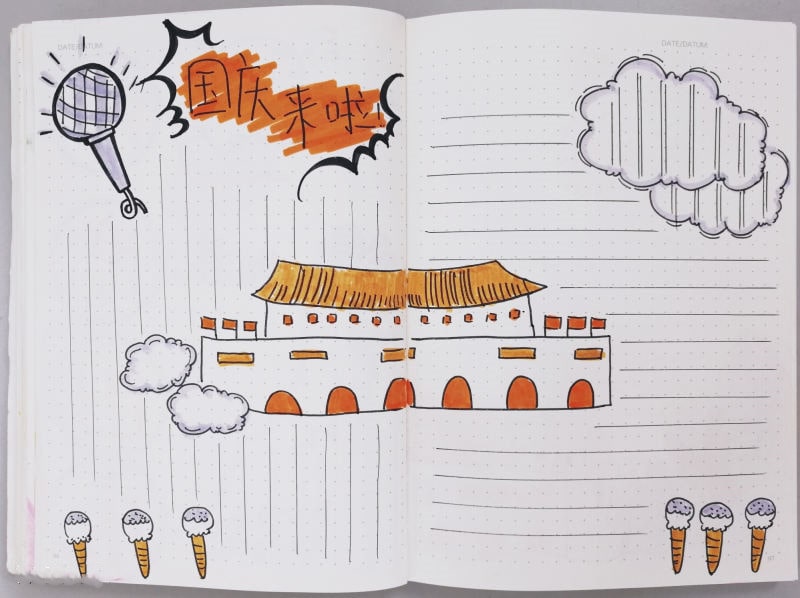 DATE/DATUM
国庆来啦!
DATE/DATUM